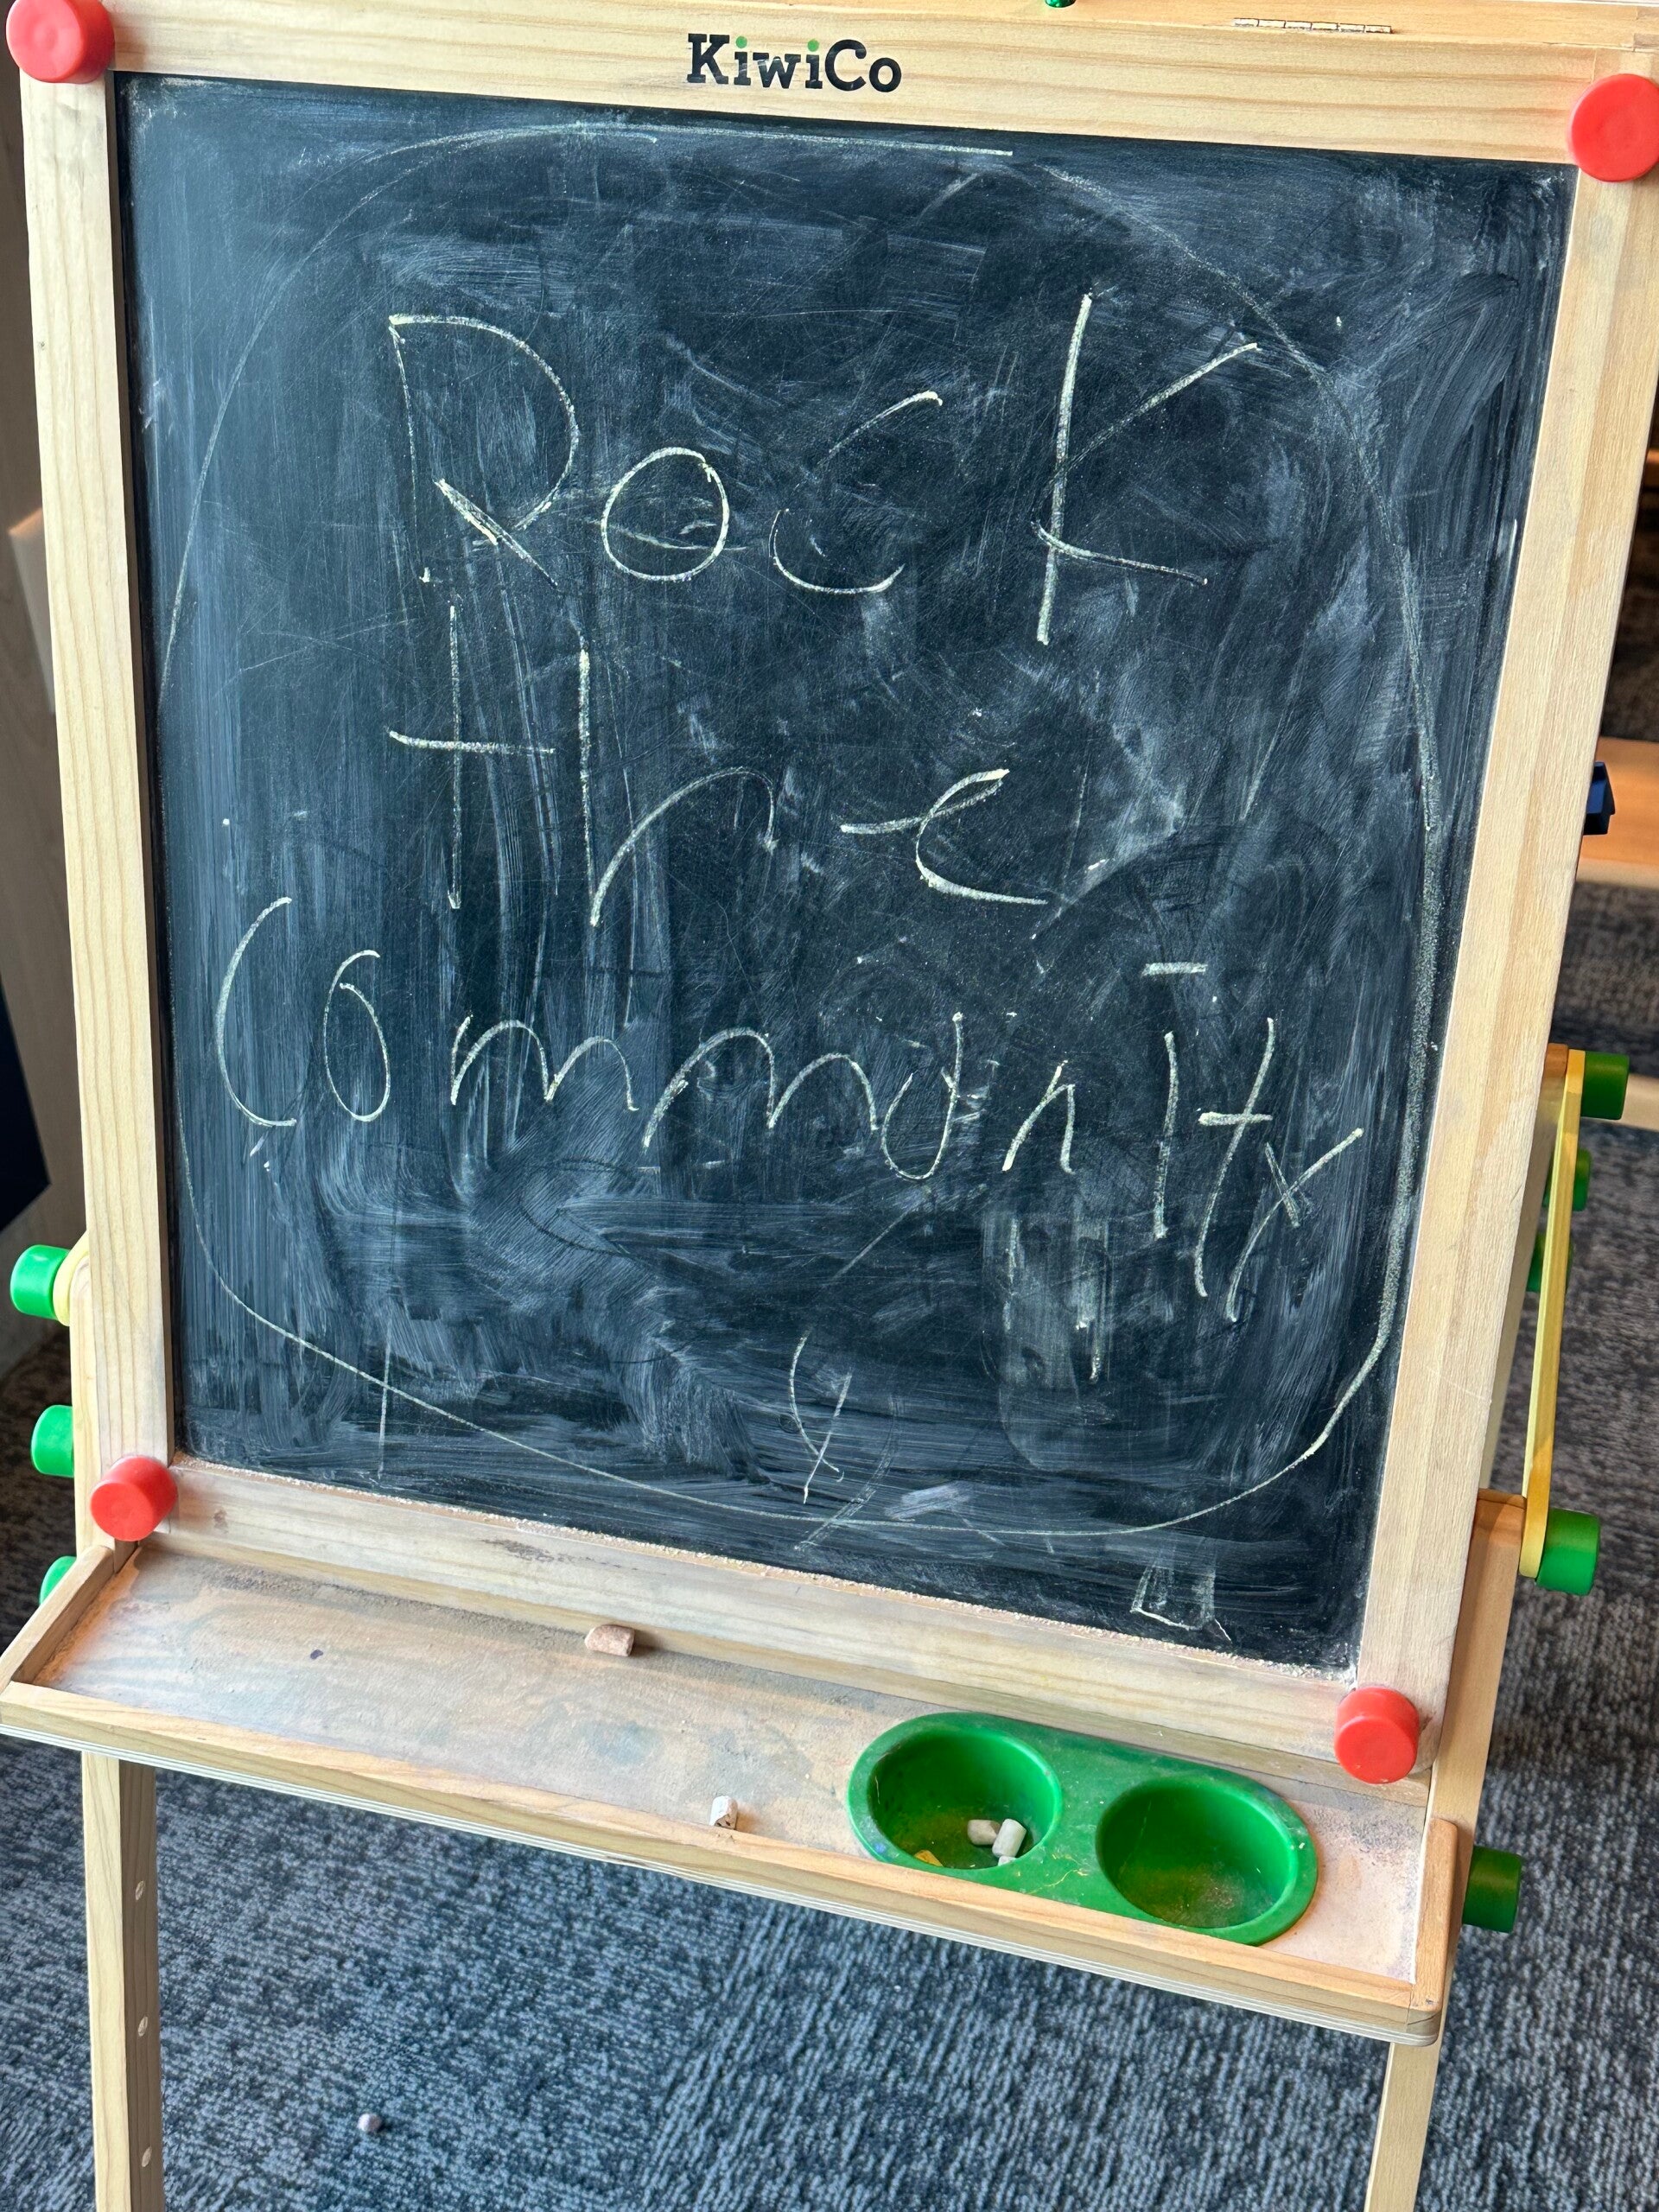 KiwiCo
Rock
the
Community